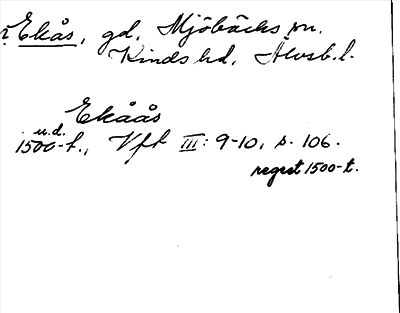 Ekås, gd, Mjöbäcks sn.
Kinds hd, Älvsb.l.
Ekåås
u.d.
1500-t., Vft III: 9-10, s. 106.
regest 1500-t.